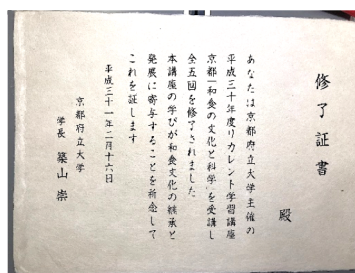 修了証書
殿
あなたは京都府立大学主催の
平成三十年度リカレント学習講座
京都「和食の文化と科学」を受講し
全五回を修了されました
本講座の学びが和食文化の継承と
発展に寄与することを祈念して
これを証します
平成三十一年二月十六日
京都府立大学
学長 築山崇